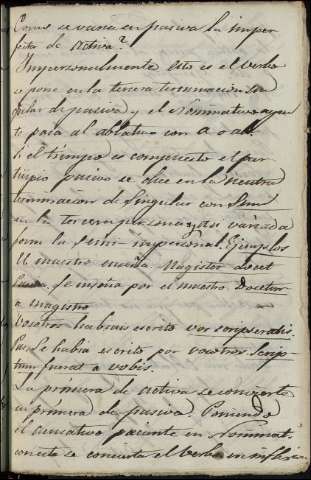 Como se varia en pasiva la imper
fita de Activa?
Impersonalmente esto es el verbo
se pone en la tercera terminacion Sin
gular de pasiva y el Nominativo agen
te pasa al ablativo con A o ab.
Si el tiempo es compuesto el par
ticipio pasivo se pone en la neutra
terminacion de Singular con Sum
en la tercera persona y asi variada
forma la impersonal. Ejemplos
El maestro enseña Magister docet
Pasiva. Se enseña por el maestro Docetur
a magistro
Vosotros habiais escrito vos scripseratis
Pas. Se habia escrito por vosotros Scrip
tum fuerat a vobis.
La primera de activa se convierte
en primera de pasiva. Poniendo
el acusativo paciente en Nominat.
con este se concierta el Verbo